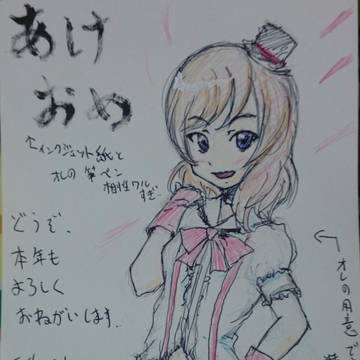 あけ
おめ
↑インクジェット紙と
オレの筆ペン
相性ワル
すぎ
どうぞ、
本年も
よろしく
おねがいします。
←オレの用意で